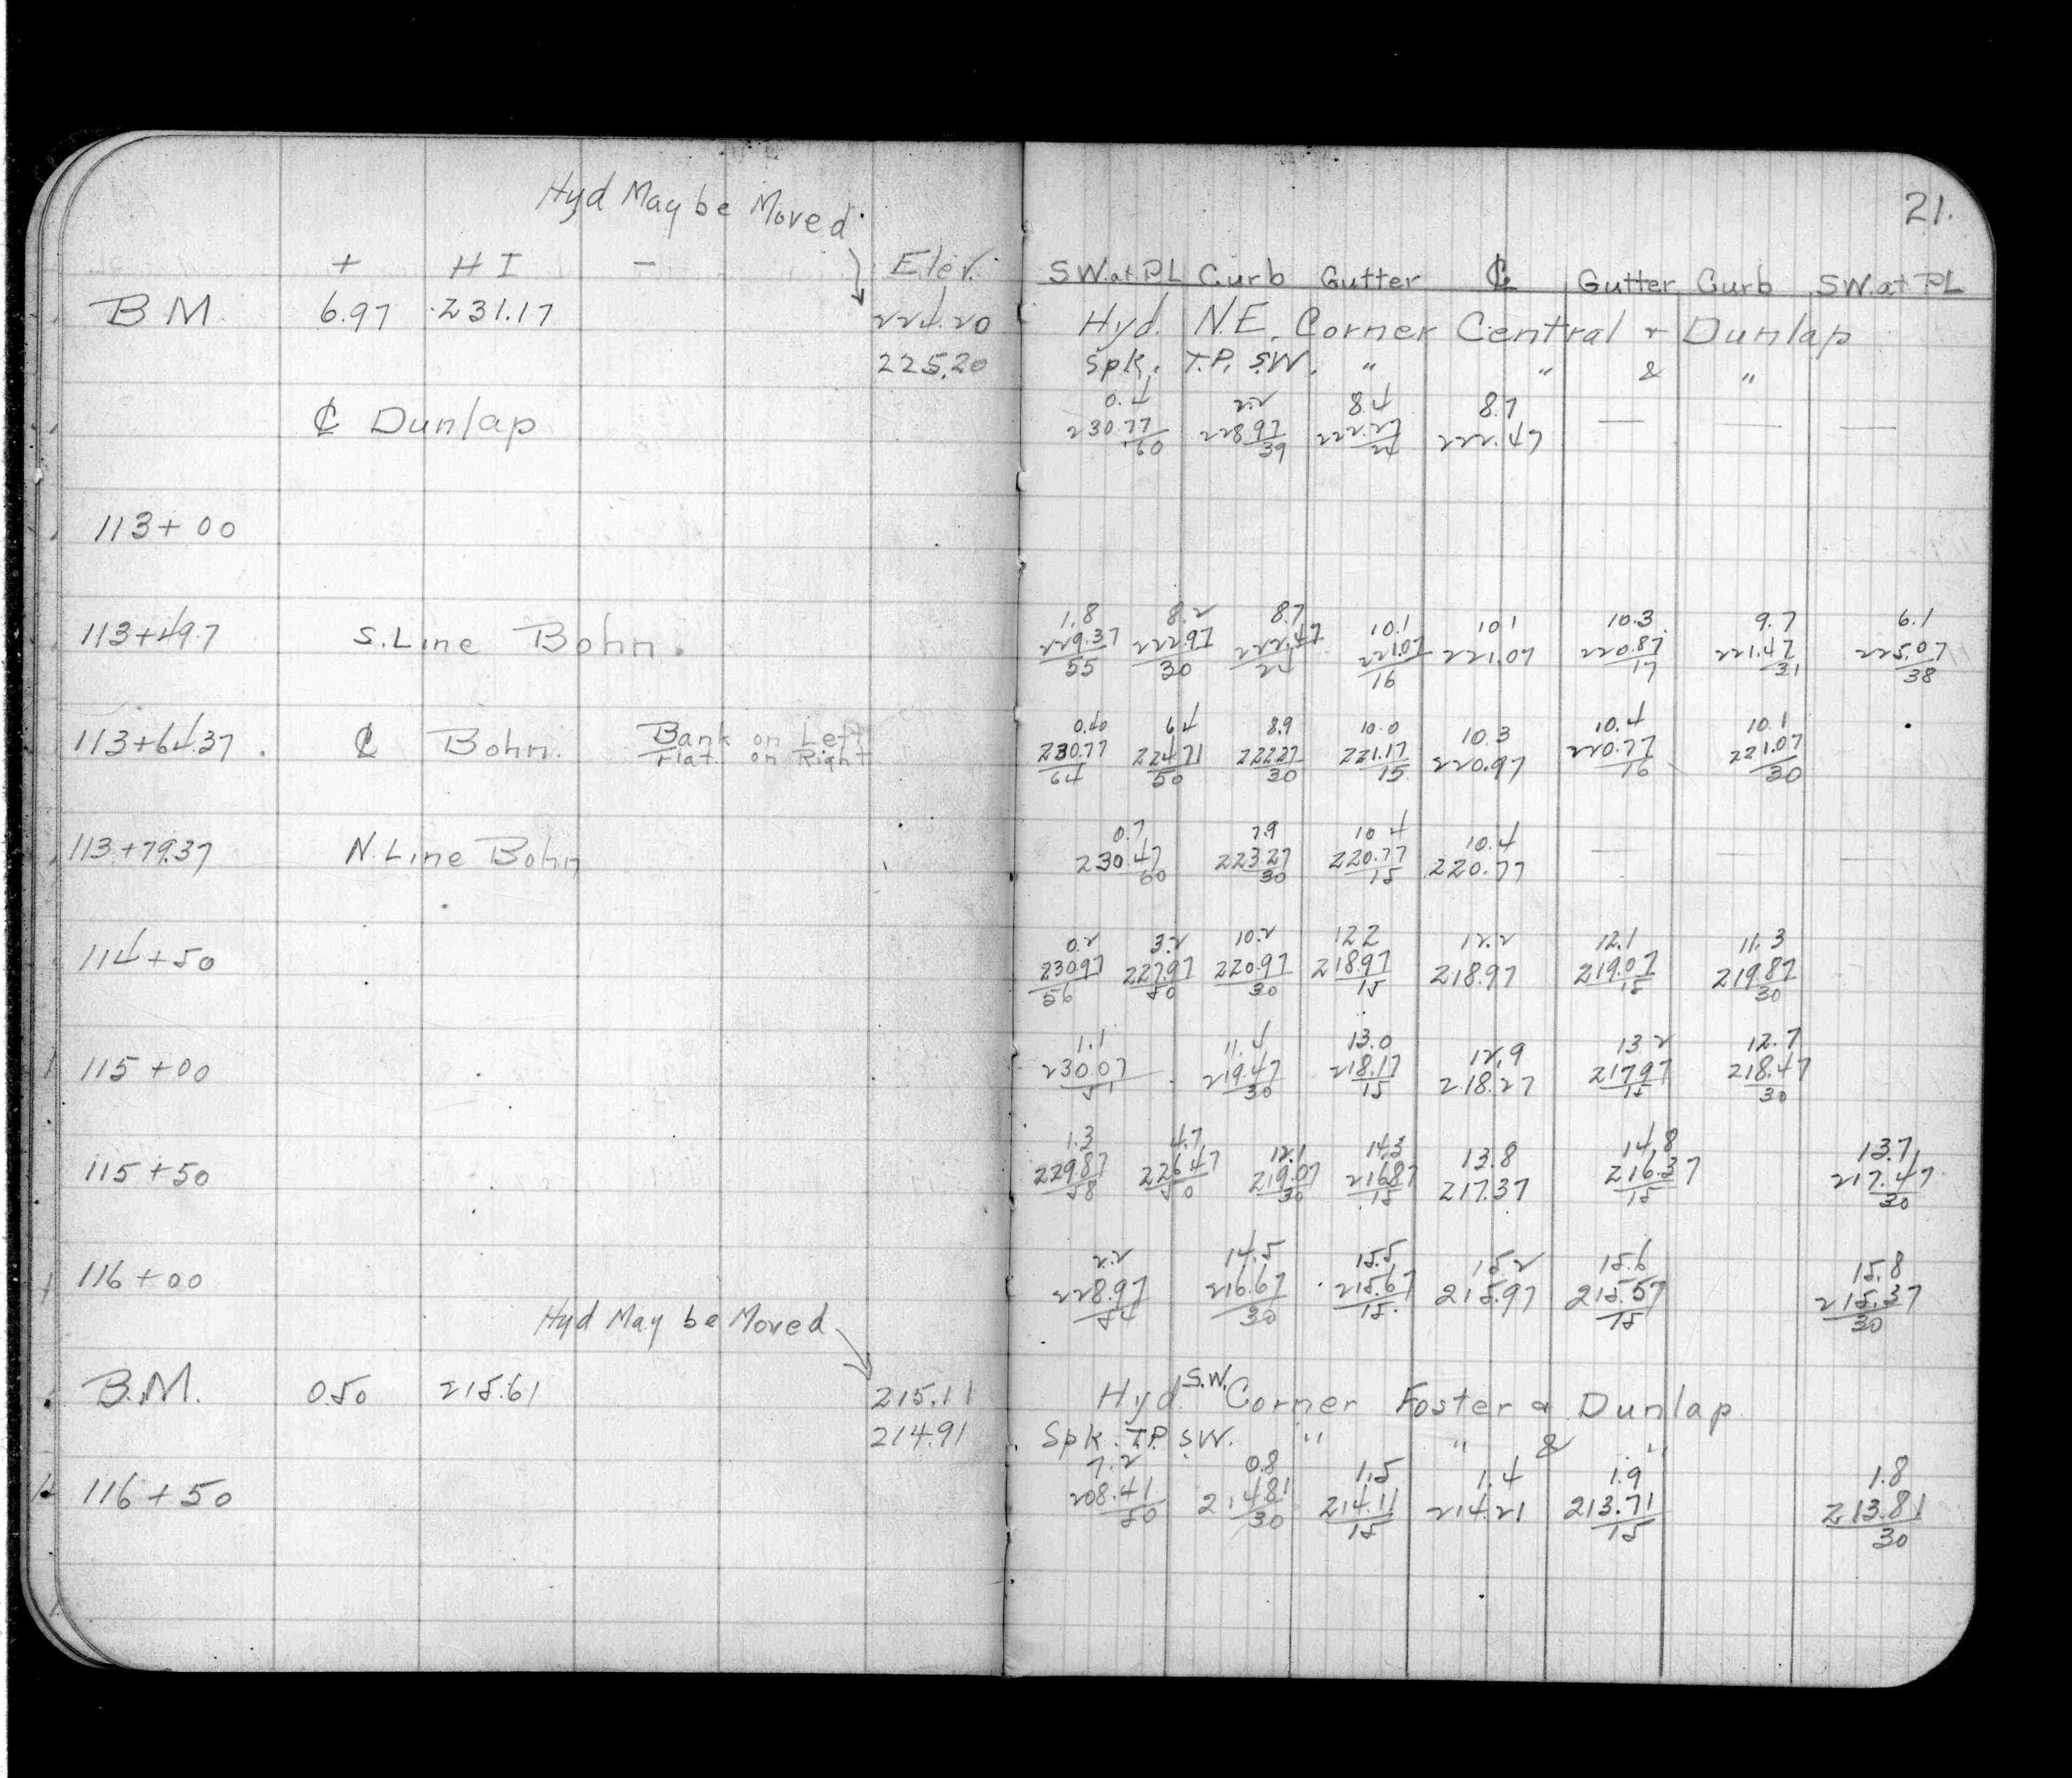 21.
Hyd May be Moved
+ H I - Elev. S.W. at P.L. Curb Gutter ℄ Gutter Curb S.W. at P.L.
B M 6.97 231.17 224.20 Hyd. N.E. Corner Central & Dunlap
225.20 Spk. T.P. S.W. " " & "
0.4 2.2 8.4 8.7
℄ Dunlap 230.77 228.97 222.77 222.47 — — —
60 39 24
113+00
1.8 8.2 8.7 10.1 10.1 10.3 9.7 6.1
113+49.7 S. Line Bohn. 229.37 222.97 222.47 221.07 221.07 220.87 221.47 225.07
55 30 24 16 17 31 38
0.40 6.4 8.9 10.0 10.3 10.4 10.1
113+64.37 ℄ Bohn. Bank on Left 230.77 224.71 222.27 221.17 220.97 220.77 221.07
Flat on Right 64 50 30 15 16 30
0.7 7.9 10.4 10.4
113+79.37 N. Line Bohn 230.47 223.27 220.77 220.77 — — —
60 30 15
0.2 3.2 10.2 12.2 12.2 12.1 11.3
114+50 230.97 227.97 220.97 218.97 218.97 219.07 219.87
56 50 30 15 15 30
1.1 11.4 13.0 12.9 13.2 12.7
115+00 230.07 219.47 218.17 218.27 217.97 218.47
51 30 15 15 30
1.3 4.7 12.1 14.3 13.8 14.8 13.7
115+50 229.87 226.47 219.07 216.87 217.37 216.37 217.47
58 50 30 15 15 30
2.2 14.5 15.5 15.2 15.6 15.8
116+00 228.97 216.67 215.67 215.97 215.57 215.37
54 30 15 15 30
Hyd May be Moved
B.M. 0.50 215.61 215.11 Hyd. S.W. Corner Foster & Dunlap
214.91 Spk. T.P. S.W. " " & "
7.2 0.8 1.5 1.4 1.9 1.8
116+50 208.41 214.81 214.11 214.21 213.71 213.81
50 30 15 15 30